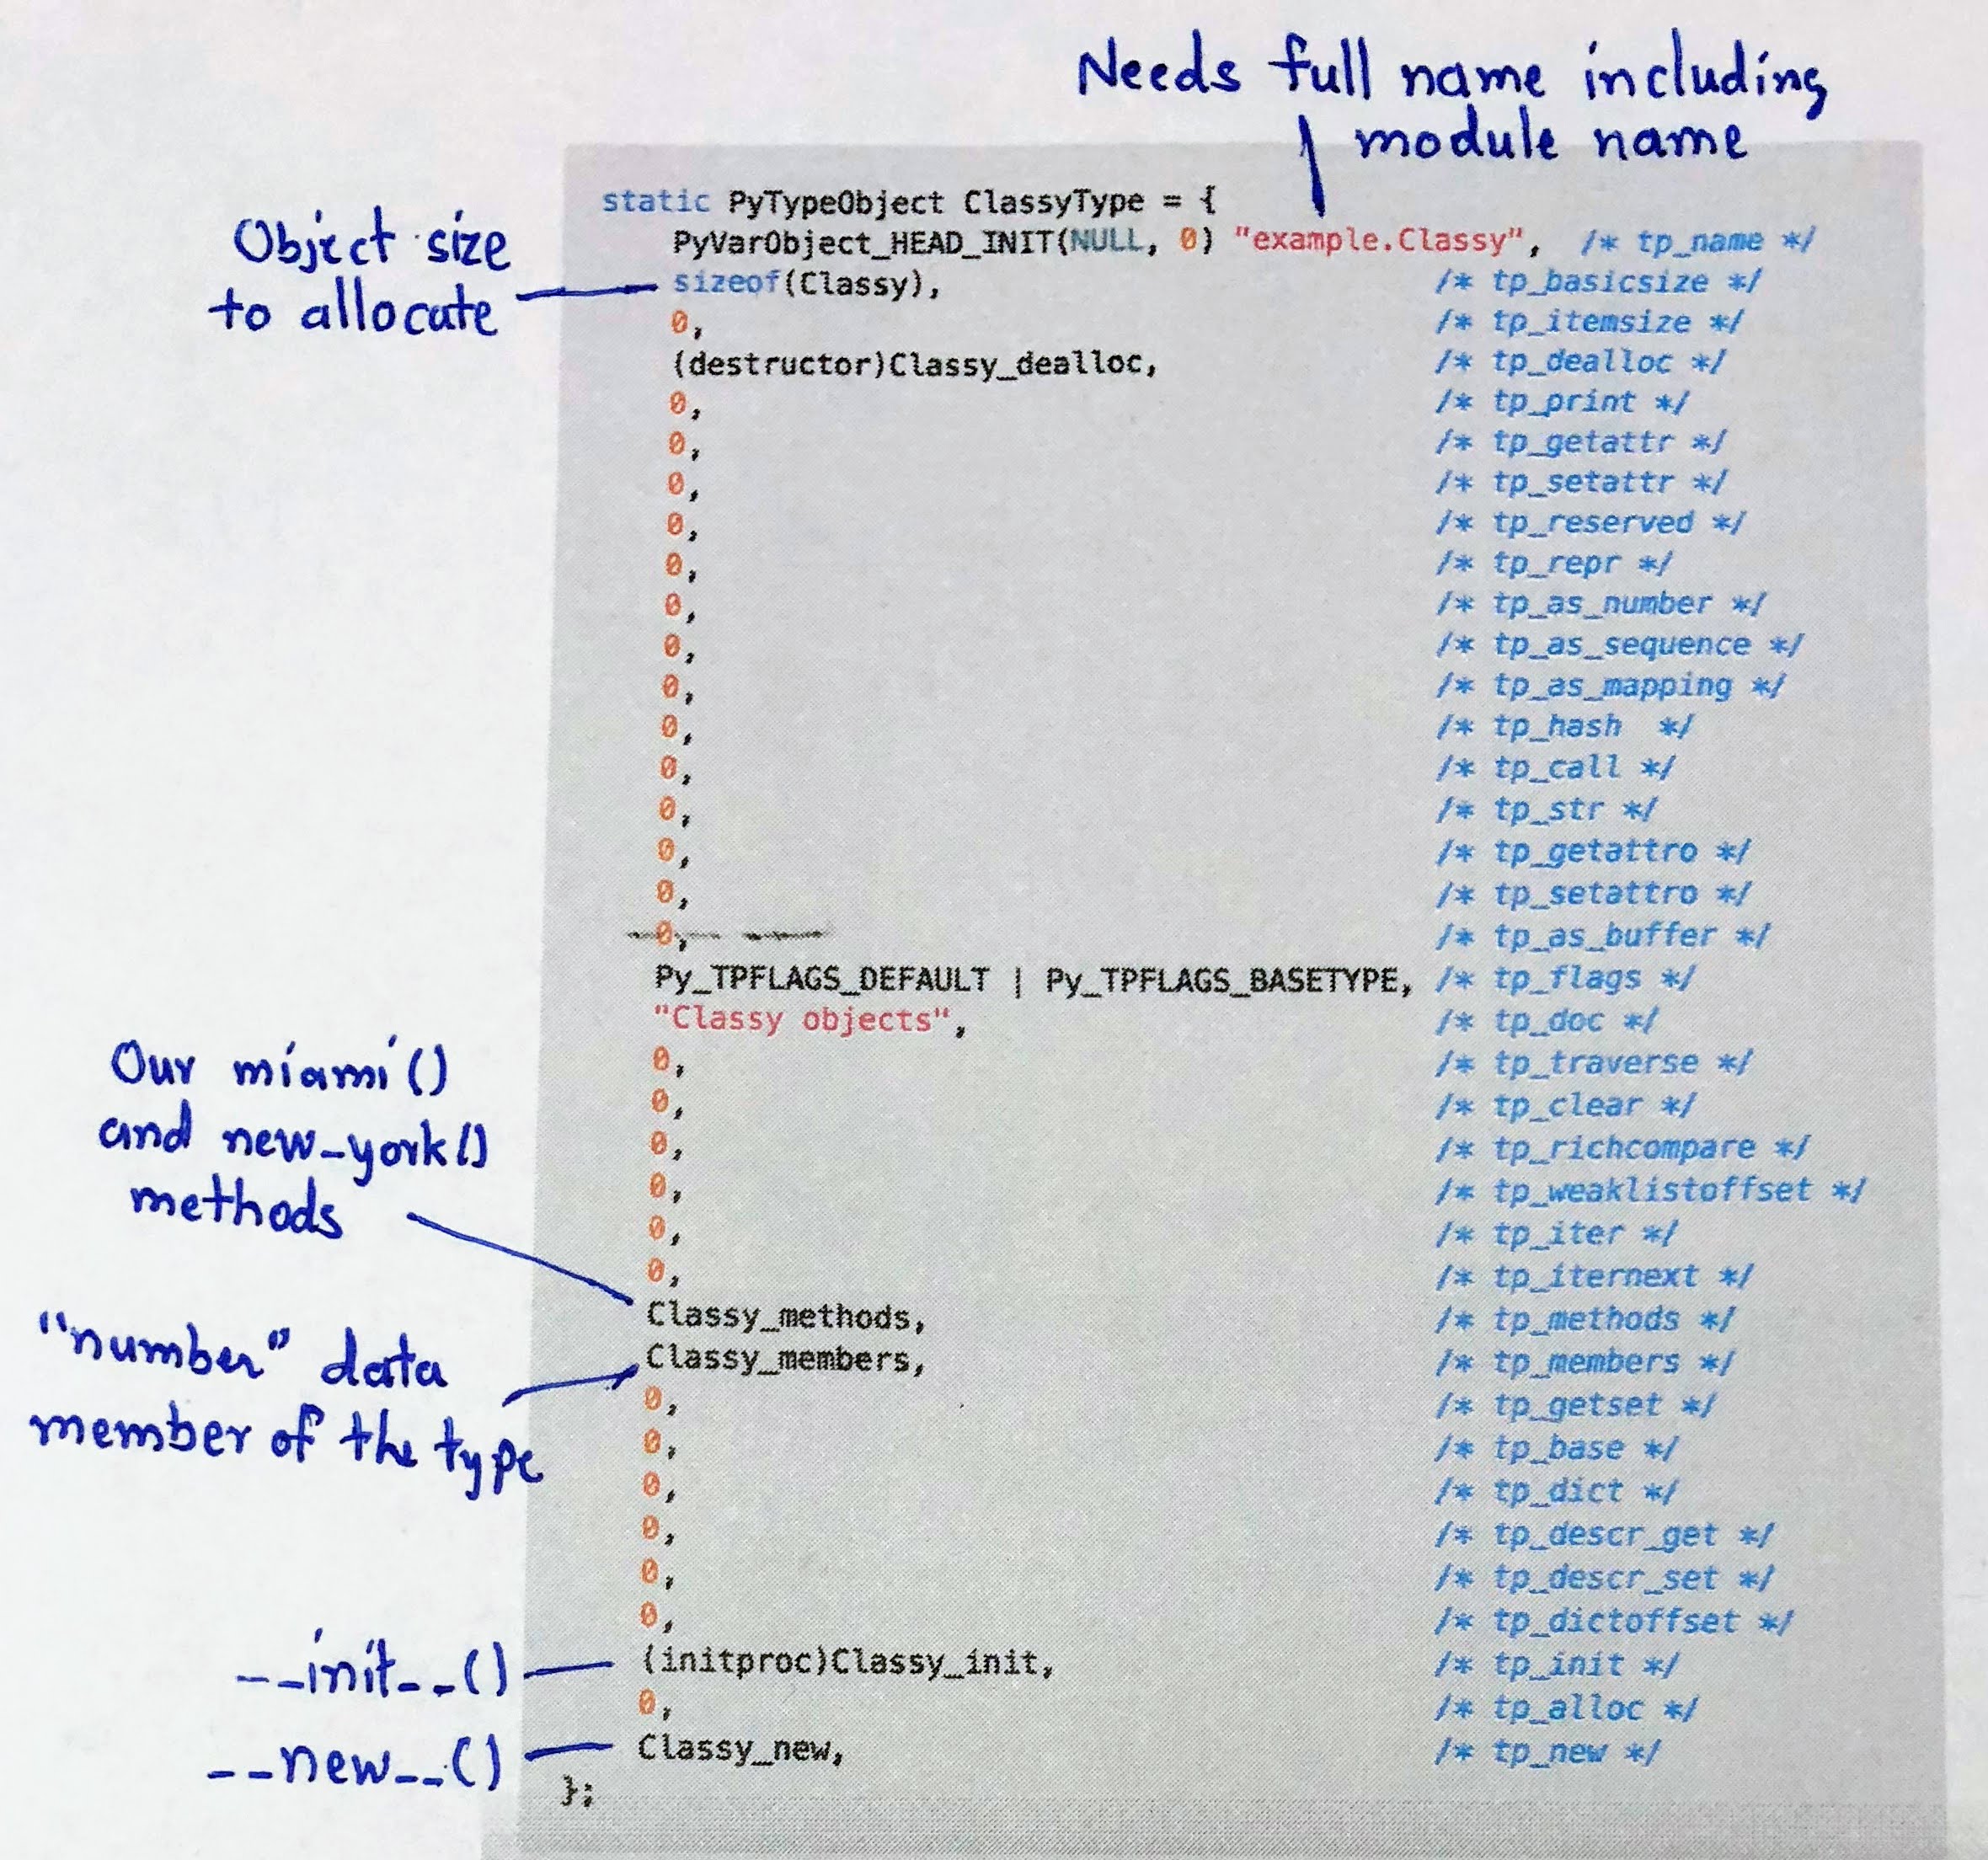 Needs full name including
module name
static PyTypeObject ClassyType = {
PyVarObject_HEAD_INIT(NULL, 0) "example.Classy", /* tp_name */
Object size
to allocate
sizeof(Classy), /* tp_basicsize */
0, /* tp_itemsize */
(destructor)Classy_dealloc, /* tp_dealloc */
0, /* tp_print */
0, /* tp_getattr */
0, /* tp_setattr */
0, /* tp_reserved */
0, /* tp_repr */
0, /* tp_as_number */
0, /* tp_as_sequence */
0, /* tp_as_mapping */
0, /* tp_hash  */
0, /* tp_call */
0, /* tp_str */
0, /* tp_getattro */
0, /* tp_setattro */
0, /* tp_as_buffer */
Py_TPFLAGS_DEFAULT | Py_TPFLAGS_BASETYPE, /* tp_flags */
"Classy objects", /* tp_doc */
0, /* tp_traverse */
0, /* tp_clear */
0, /* tp_richcompare */
0, /* tp_weaklistoffset */
0, /* tp_iter */
0, /* tp_iternext */
Our miami()
and new_york()
methods
Classy_methods, /* tp_methods */
"number" data
member of the type
Classy_members, /* tp_members */
0, /* tp_getset */
0, /* tp_base */
0, /* tp_dict */
0, /* tp_descr_get */
0, /* tp_descr_set */
0, /* tp_dictoffset */
__init__()
(initproc)Classy_init, /* tp_init */
0, /* tp_alloc */
__new__()
Classy_new, /* tp_new */
};